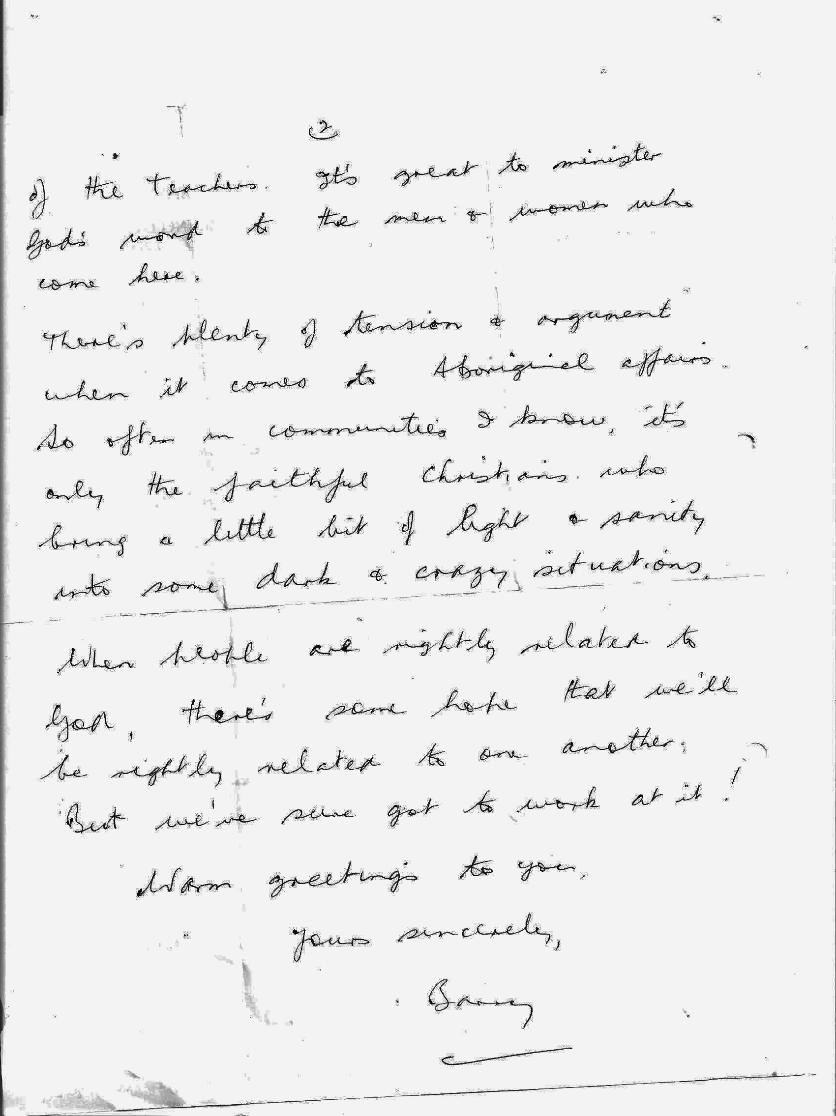 2
of the teachers. It's great to minister
God's word to the men & women who
come here.
There's plenty of tension & argument
when it comes to Aboriginal affairs.
So often in communities I know, it's
only the faithful Christians who
bring a little bit of light & sanity
into some dark & crazy situations.
When people are rightly related to
God, there's some hope that we'll
be rightly related to one another.
But we've sure got to work at it!
Warm greetings to you,
Yours sincerely,
Barry